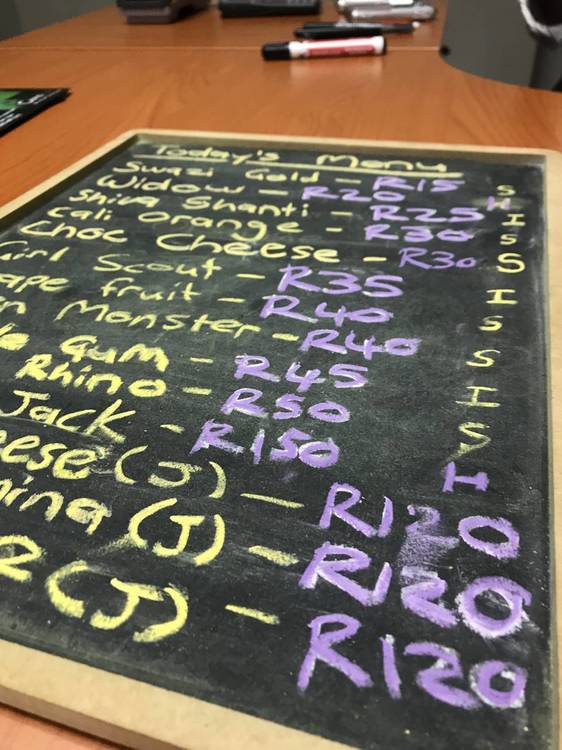 Today's Menu
Swazi Gold - R15 S
Widow - R20 H
Shiva Shanti - R25 I
Cali Orange - R30 S
Choc Cheese - R30 S
Girl Scout - R35 I
ape fruit - R40 S
Monster - R40 S
Gum - R45 I
Rhino - R50 S
Jack - R150 H
eese (J) - R120
hina (J) - R120
(J) - R120